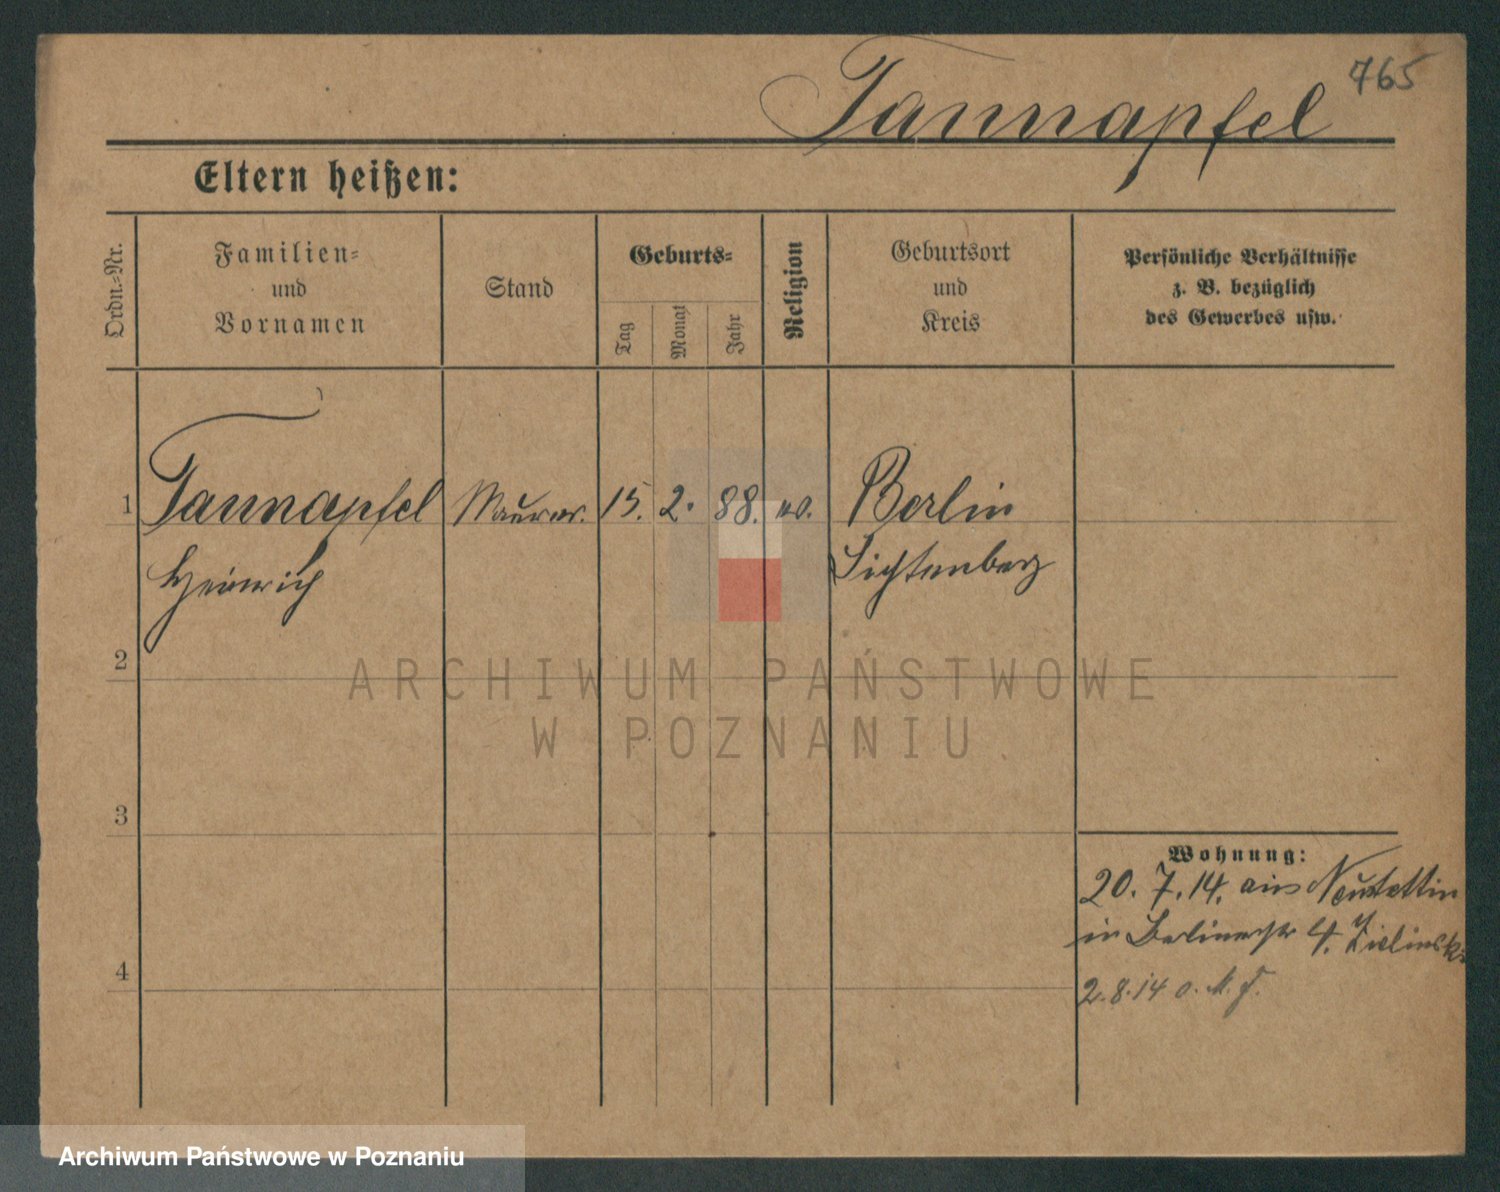 765
Tannapfel
Eltern heißen:
Ordn.-Nr.
Familien-
und
Vornamen
Stand
Geburts-
Tag
Monat
Jahr
Religion
Geburtsort
und
Kreis
Persönliche Verhältnisse
z. B. bezüglich
des Gewerbes usw.
1 Tannapfel Maurer. 15. 2. 88. ev. Berlin
Heinrich Lichtenberg
2
3
4
Wohnung:
20. 7. 14. aus Neustettin
in Berlinerstr 4. Zielinski
2.8.14 o.
ARCHIWUM PAŃSTWOWE
W POZNANIU
Archiwum Państwowe w Poznaniu